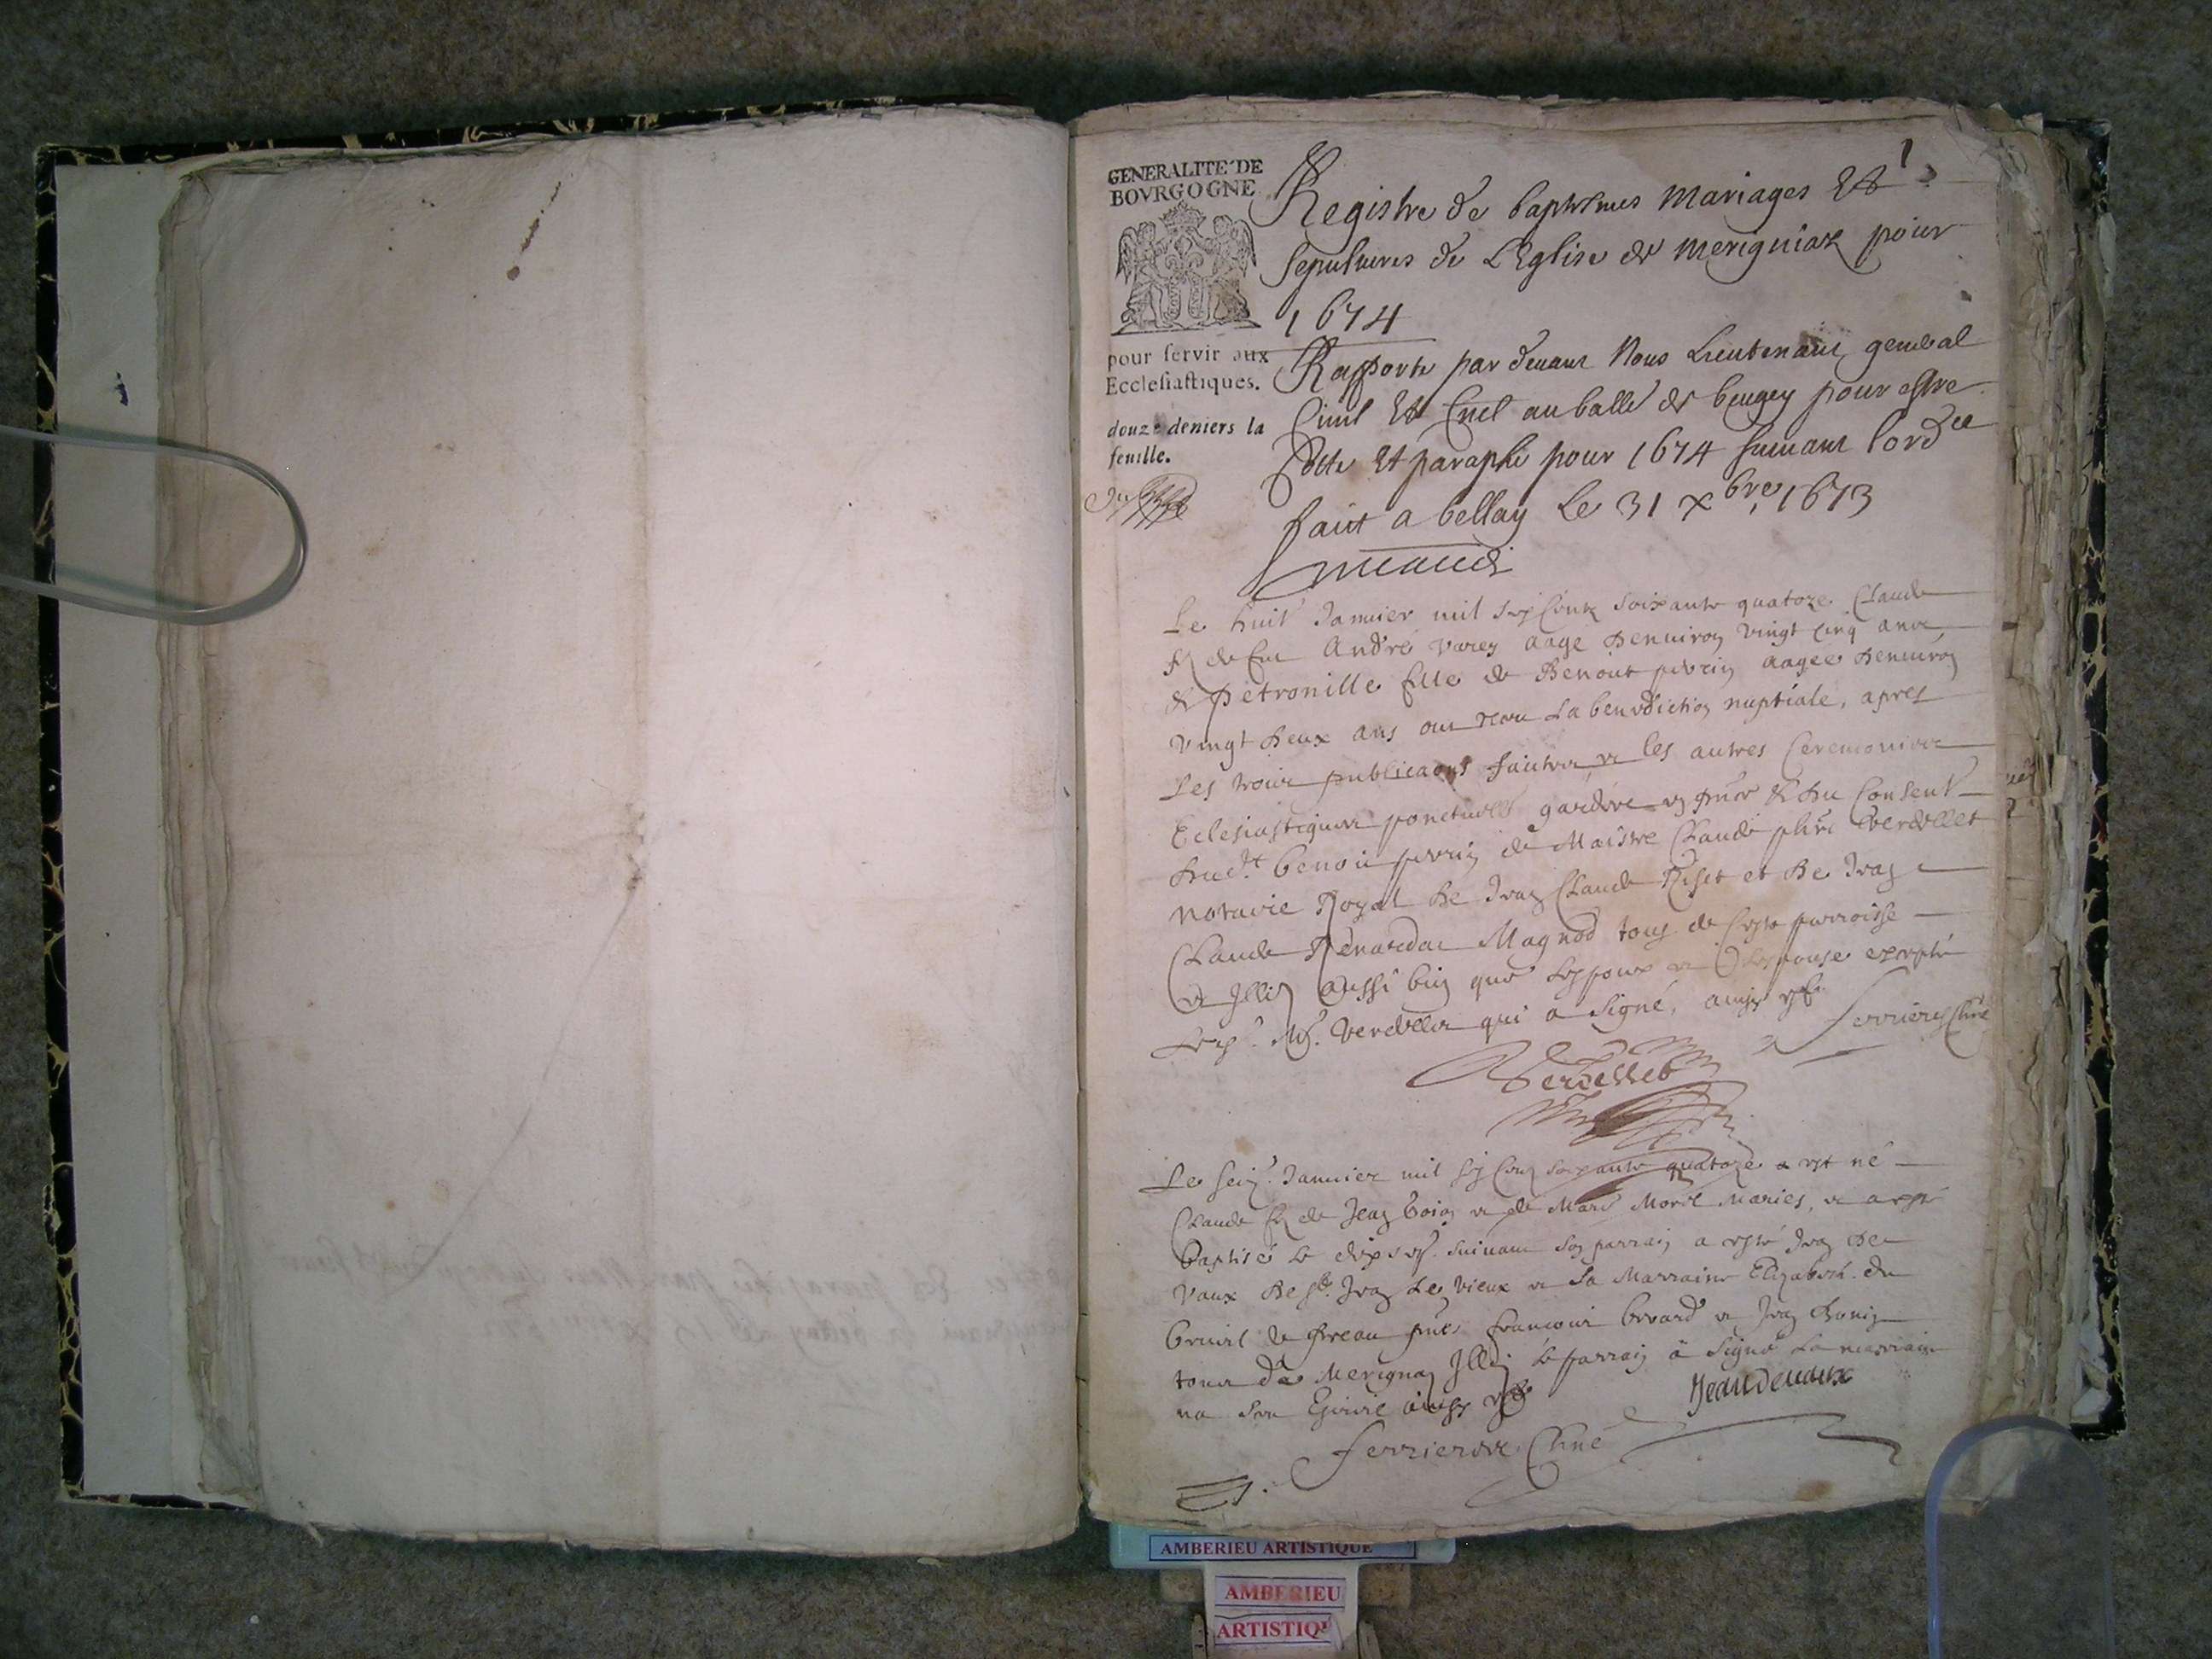 GENERALITÉ DE
BOVRGOGNE
pour servir aux
Ecclesiastiques.
douze deniers la
feuille.
1
Registre de baptesmes mariages Et
sepultures de L'Eglise de merigniat pour
1674
Raporte par devant Nous Lieutenant general
Civil Et Cnel au balle de beugey pour estre
Cotte Et paraphe pour 1674 suivant lordce
faict a bellay Le 31 xbre 1673
Le huit Janvier mil six Cent soixante quatoze Claude
fz de feu André varey aage denviron vingt cinq ans
& Petronille fille de Benoit perrin aagee denviron
vingt deux ans ont receu La benediction nuptiale, apres
Les trois publicaons faictes & les autres Ceremonies
Eclesiastiques ponctuelt gardees en pnce & du Consent
dudt benoit perrin de Maistre Claude Verdellet
notaire Royal de Jean Claude et de Jean
Claude Magnod tous de Ceste parroisse
& Illis aussi bien que Lespoux & Lespouse excepté
Led. Me. Verdellet qui a signé, ainsy est
ferrieres Curé
Verdellet
Le seiz. Janvier mil six Cens soixante quatoze a est né
Claude fz de Jean & de Marie Morel Maries, & a esté
baptisé Le dix sep. suivant son parrain a esté Jean de
vaux de Sr. Jean Le vieux & sa Marraine Elizabeth du
breuil de pnts francois brvard & Jean
tous de Merignaz Illis Le parrain a signé La marraine
na sceu Escrire ainsy est
Jeandevaux
ferrieres Curé
AMBERIEU ARTISTIQUE
AMBERIEU
ARTISTIQU